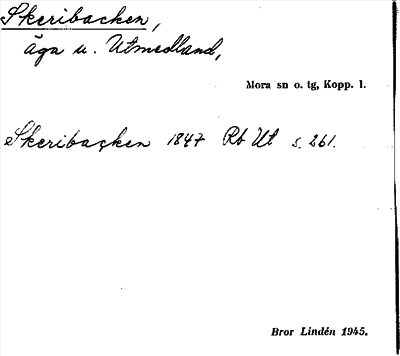 Skeribacken,
äga u. Utmedland,
Mora sn o. tg, Kopp. l.
Skeribacken 1847 Rb Ut s. 261.
Bror Lindén 1945.